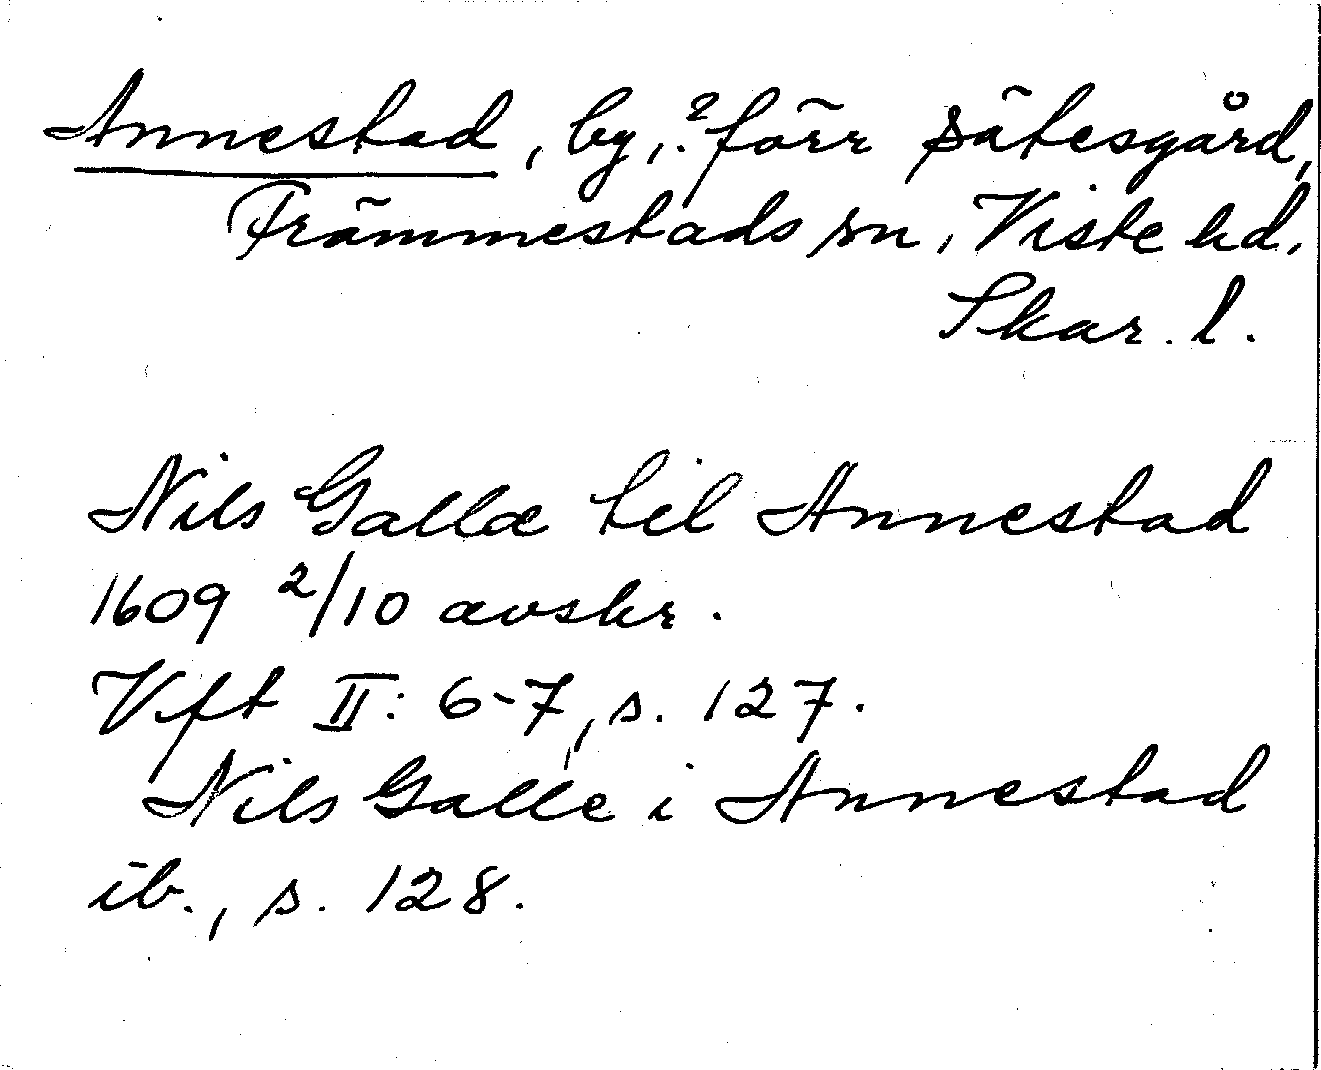 Annestad, by, ? förr sätesgård,
Främmestads sn, Viste hd,
Skar. l.
Nils Gallæ til Annestad
1609 2/10 avskr.
Vft II: 6-7, s. 127.
Nils Galle i Annestad
ib., s. 128.